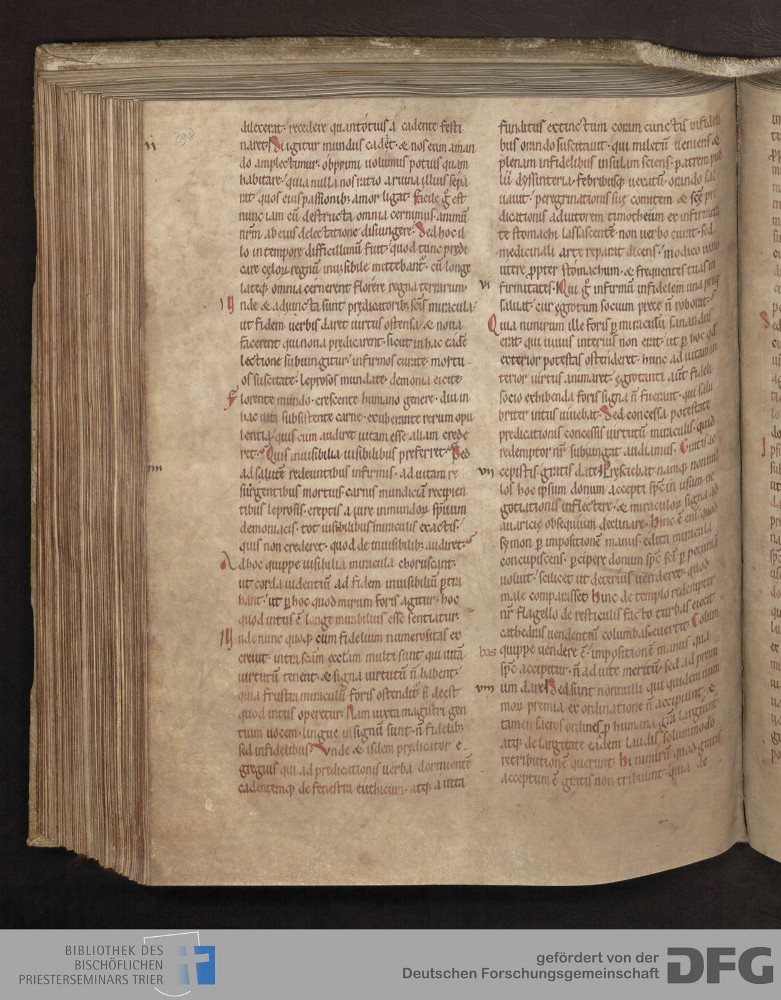 dilexerat· recedere quantotius a cadente festi
naret· Si igitur mundus cadet· & nos eum aman
do amplectimur· opprimi uolumus potius quam
habitare· quia nulla nos ratio a ruina illius sepa
rat· quos eius passionib; amor ligat· Facile g̃ est
nunc iam cũ destructa omnia cernimus· animũ
nr̃m ab eius delectatione disiungere· Sed hoc il
lo in tempore difficillimũ fuit· quod tunc predi
care celoꝝ regnũ inuisibile mittebant̃· cũ longe
lateq; omnia cernerent florere regna terrarum·
Unde & adiuncta sunt predicatorib; sc̃is miracula·
ut fidem uerbis daret uirtus ostensa· & noua
facerent qui noua predicarent· sicut in hac eadẽ
lectione subiungitur· infirmos curate· mortu
os suscitate· leprosos mundate· demonia eicite·
Florente mundo· crescente humano genere· diu in
hac uita subsistente carne· exuberante rerum opu
lentia· quis cum audiret uitam esse aliam crede
ret· Quis inuisibilia uisibilibus preferret· Sed
ad salutẽ redeuntibus infirmis· ad uitam re
surgentibus mortuis· carnis mundiciã recipien
tibus leprosis· ereptis a iure inmundoꝝ spirituum
demoniacis· tot uisibilibus miraculis exactis·
quis non crederet· quod de inuisibilib; audiret·
Ad hoc quippe uisibilia miracula choruscant·
ut corda uidentiũ ad fidem inuisibiliũ ptra
hant· ut ꝑ hoc quod mirum foris agitur· hoc
quod intus ẽ longe mirabilius esse sentiatur·
Unde nunc quoq; cum fidelium numerositas ex
creuit· intra sc̃am eccl̃am multi sunt qui uitã
uirtutũ tenent· & signa uirtutũ ñ habent·
quia frustra miraculũ foris ostenditur̃ si deest
quod intus operetur· Nam iuxta magistri gen
tium uocem· lingue in signũ sunt· ñ fidelib;
sed infidelibus· Unde & isdem predicator e
gregius qui ad predicationis uerba dormiente
cadentemq; de fenestra euthicum· atq; a uita
funditus extinctum coram cunctis infideli
bus orando suscitauit· qui miletũ ueniens &
plenam infidelibus insulam sciens· patrem pub
lii dyssinteria· febribusq; uexatũ· orando sal
uauit· peregrinationis sue comitem & sc̃e pre
dicationis adiutorem timotheum ex infirmita
te stomachi lassescentẽ· non uerbo curat· sed
medicinali arte reparat dicens· modico uino
utere propter stomachum· & frequentes tuas in
firmitates· Qui g̃ infirmũ infidelem una prece
saluat· cur egrotum socium prece ñ roborat·
Quia nimirum ille foris ꝑ miraculũ sanandus
erat· qui uiuus interius non erat· ut ꝑ hoc qd̃
exterior potestas ostenderet· hunc ad uitam in
terior uirtus animaret· egrotanti aũt fideli
socio exhibenda foris signa ñ fuerant· qui salu
briter intus uiuebat· Sed concessa potestate
predicationis concessis uirtutũ miraculis· quid
redemptor nr̃ subiungat audiamus· Gratis ac
cepistis gratis date· Presciebat namq; non nul
los hoc ipsum donum accepti sp̃c in usum ne
gotiationis inflectere· & miraculoꝝ signa ad
auaricie obsequium declinare· Hinc ẽ eni quod
symon ꝑ impositionẽ manus edita miracula
concupiscens· ꝑcipere donum sp̃c sc̃i ꝑ pecuniã
uoluit· scilicet ut deterius uenderet· quod
male comparasset· Hinc de templo redemptor
nr̃ flagello de resticulis facto turbas eiecit·
cathedras uendentiũ columbas euertit· Colum
bas quippe uendere ẽ· impositionẽ manus qua
sp̃c accipitur· ñ ad uite meritũ· sed ad premi
um dare· Sed sunt nonnulli qui quidem num
moꝝ premia ex ordinatione ñ accipiunt· &
tamen sacros ordines ꝑ humana gr̃a largiunt·
atq; de largitate eadem laudis solummodo
retributionẽ querunt· Hi nimirũ quod gratis
acceptum ẽ gratis non tribuunt· quia de
BIBLIOTHEK DES
BISCHÖFLICHEN
PRIESTERSEMINARS TRIER
gefördert von der
Deutschen Forschungsgemeinschaft
DFG